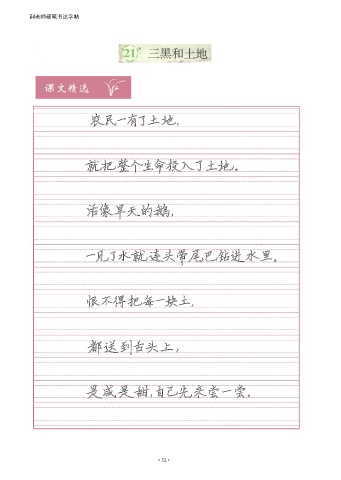 田老师硬笔书法字帖
21 三黑和土地
课文精选
农民一有了土地，
就把整个生命投入了土地。
活像旱天的鹅，
一见了水就连头带尾巴钻进水里。
恨不得把每一块土，
都送到舌头上，
是咸是甜，自己先来尝一尝。
·32·